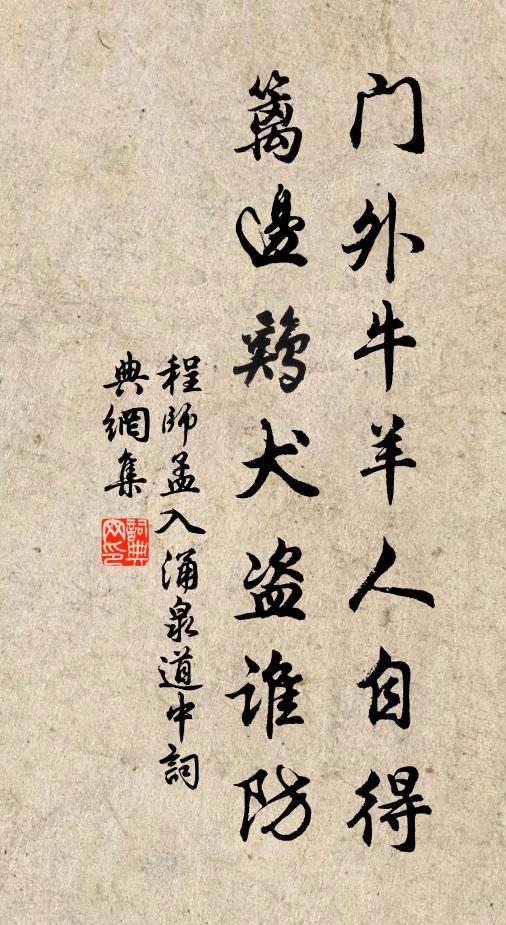 门外牛羊人自得
篱邊鷄犬盗谁防
程師孟入涌泉道中詞
典網集
詞典
网印